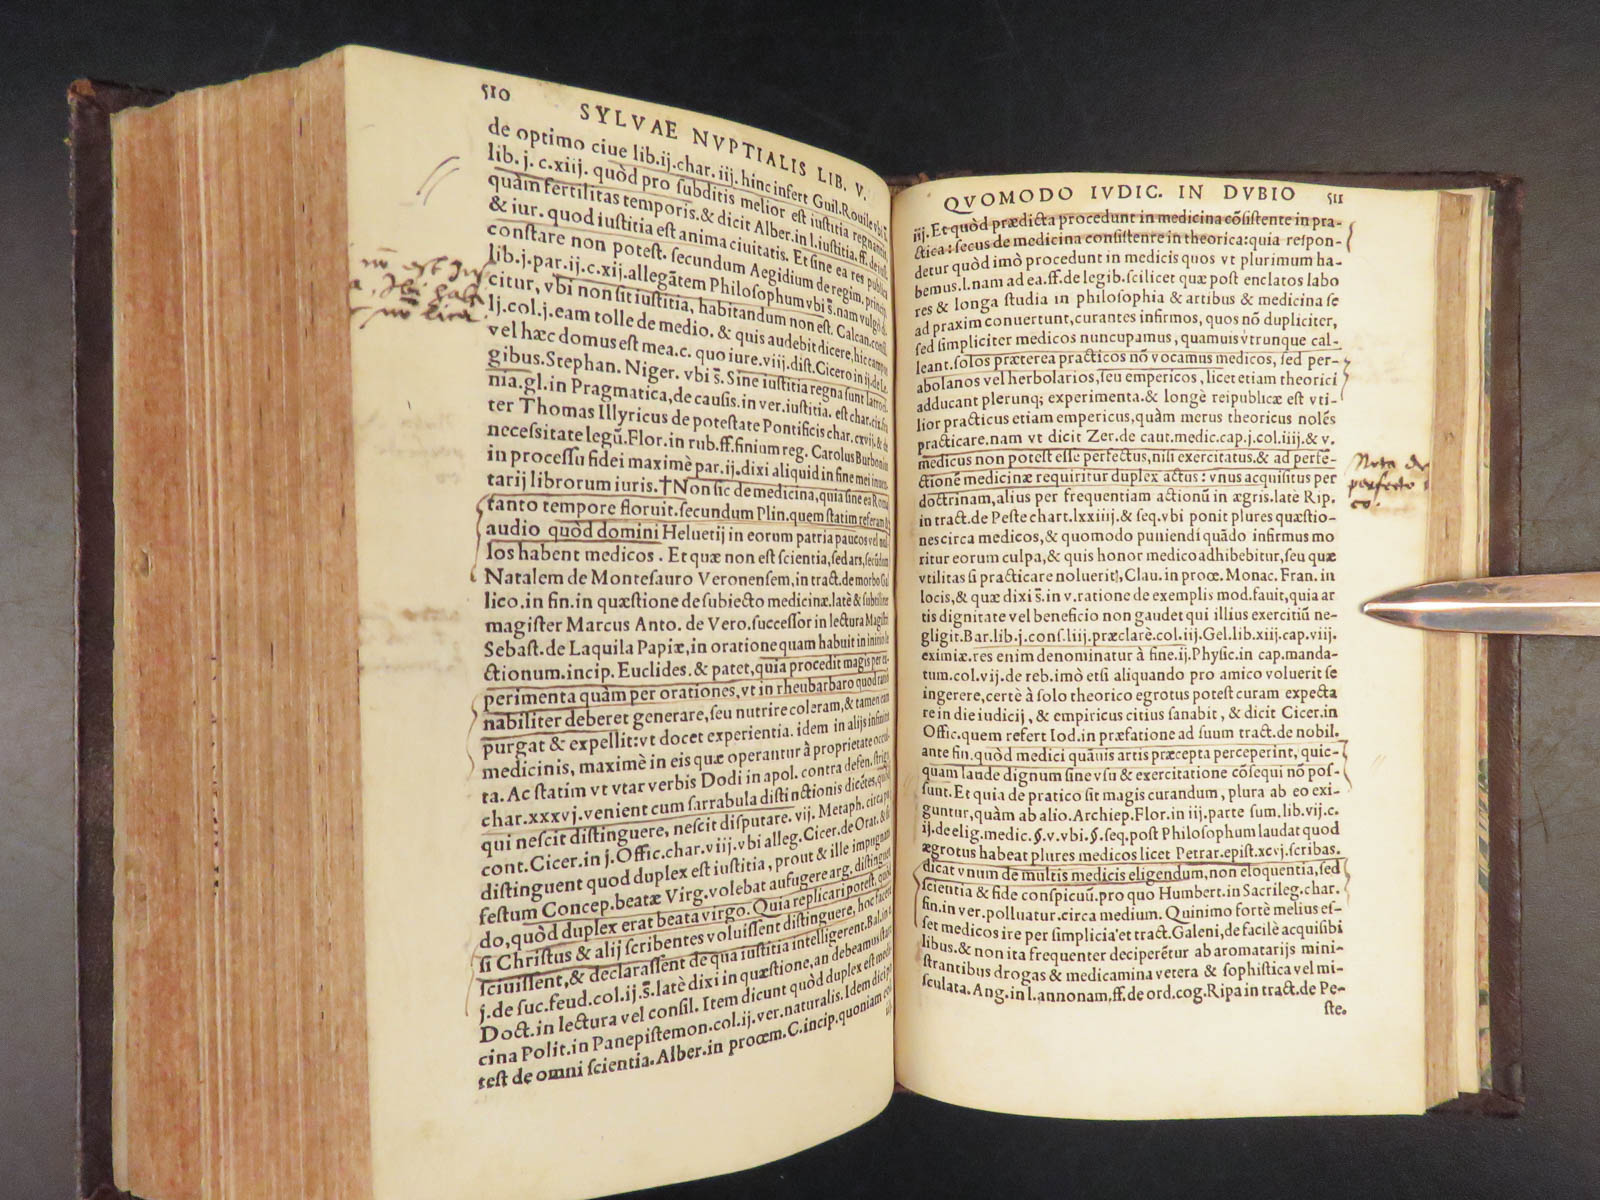 510
SYLVAE NVPTIALIS LIB. V.
de optimo ciue lib.ij.char.iij.hinc infert Guil.Rouile vbi s̄.
lib.j.c.xiij. quòd pro subditis melior est iustitia regnantis,
quàm fertilitas temporis.& dicit Alber.in l.iustitia.ff.de iust.
& iur. quod iustitia est anima ciuitatis. Et sine ea res publica
constare non potest. secundum Aegidium de regim. princip.
lib.j.par.ij.c.xij.allegãtem Philosophum vbi s̄.nam vulgò di-
citur, vbi non sit iustitia, habitandum non est. Calcan.consil.
lj.col.j.eam tolle de medio. & quis audebit dicere, hic campus
vel hæc domus est mea.c. quo iure.viij.dist.Cicero in ij.de Le-
gibus.Stephan. Niger. vbi s̄. Sine iustitia regna sunt latroci-
nia.gl.in Pragmatica,de causis.in ver.iustitia. est char.cit.fra-
ter Thomas Illyricus de potestate Pontificis char.cxvij.& de
necessitate legũ.Flor.in rub.ff.finium reg. Carolus Burbonius
in processu fidei maximè par.ij.dixi aliquid in fine mei inuen-
tarij librorum iuris.†Non sic de medicina,quia sine ea Roma
tanto tempore floruit.secundum Plin.quem statim referam &
audio quòd domini Heluetij in eorum patria paucos vel nul-
los habent medicos. Et quæ non est scientia, sed ars, secũdum
Natalem de Montesauro Veronensem,in tract.de morbo Gal
lico.in fin.in quæstione de subiecto medicinæ.latè & subtiliter
magister Marcus Anto. de Vero.successor in lectura Magistri
Sebast. de Laquila Papiæ,in oratione quam habuit in initio le
ctionum.incip. Euclides. & patet, quia procedit magis per ex-
perimenta quàm per orationes, vt in rheubarbaro quod ratio
nabiliter deberet generare, seu nutrire coleram, & tamen eam
purgat & expellit:vt docet experientia. idem in alijs infinitis
medicinis, maximè in eis quæ operantur à proprietate occul-
ta. Ac statim vt vtar verbis Dodi in apol. contra defen. strigi.
char.xxxvj.venient cum sarrabula distinctionis dicẽtes, quòd
qui nescit distinguere, nescit disputare. vij. Metaph. circa pri.
cont. Cicer.in j. Offic.char.viij.vbi alleg. Cicer.de Orat. & sic
distinguent quod duplex est iustitia, prout & ille impugnans
festum Concep.beatæ Virg. volebat aufugere arg. distinguen
do, quòd duplex erat beata virgo. Quia replicari potest, quòd
si Christus & alij scribentes voluissent distinguere, hoc facere
sciuissent,& declarassent de qua iustitia intelligerent. Bal.in c.
j.de suc.feud.col.ij.s̄.latè dixi in quæstione, an debeamus stare
Doct.in lectura vel consil. Item dicunt quòd duplex est medi-
cina Polit.in Panepistemon.col.ij.ver.naturalis. Idem dici po
test de omni scientia. Alber.in proœm. C.incip.quoniam col.
iij.
nō est
QVOMODO IVDIC. IN DVBIO
511
iij. Et quòd prædicta procedunt in medicina cõsistente in pra-
ctica: secus de medicina consistente in theorica: quia respon-
detur quòd imò procedunt in medicis quos vt plurimum ha-
bemus.l.nam ad ea.ff.de legib.scilicet quæ post enclatos labo
res & longa studia in philosophia & artibus & medicina se
ad praxim conuertunt,curantes infirmos, quos nõ dupliciter,
sed simpliciter medicos nuncupamus, quamuis vtrunque cal-
leant. solos præterea practicos nõ vocamus medicos, sed per-
abolanos vel herbolarios, seu empericos, licet etiam theorici
adducant plerunq; experimenta.& longè reipublicæ est vti-
lior practicus etiam empericus, quàm merus theoricus nolẽs
practicare.nam vt dicit Zer.de caut.medic.cap.j.col.iiij.& v.
medicus non potest esse perfectus, nisi exercitatus. & ad perfe-
ctionẽ medicinæ requiritur duplex actus: vnus acquisitus per
doctrinam, alius per frequentiam actionũ in ægris.latè Rip.
in tract.de Peste chart.lxxiiij.& seq.vbi ponit plures quæstio-
nes circa medicos, & quomodo puniendi quãdo infirmus mo
ritur eorum culpa, & quis honor medico adhibebitur, seu quæ
vtilitas si practicare noluerit, Clau. in proœ. Monac. Fran. in
locis, & quæ dixi s̄. in v.ratione de exemplis mod.fauit, quia ar
tis dignitate vel beneficio non gaudet qui illius exercitiũ ne-
gligit. Bar.lib.j.cons.liij.præclarè.col.iij.Gel.lib.xiij.cap.viij.
eximiæ.res enim denominatur à fine.ij.Physic.in cap.manda-
tum.col.vij.de reb.imò etsi aliquando pro amico voluerit se
ingerere, certè à solo theorico egrotus potest curam expecta
re in die iudicij, & empiricus citius sanabit, & dicit Cicer.in
Offic.quem refert Iod.in præfatione ad suum tract.de nobil.
ante fin. quòd medici quãuis artis præcepta perceperint, quic-
quam laude dignum sine vsu & exercitatione cõsequi nõ pos-
sunt. Et quia de pratico sit magis curandum, plura ab eo exi-
guntur, quàm ab alio. Archiep.Flor.in iij.parte sum.lib.vij.c.
ij.de elig.medic.§.v.vbi.§.seq.post Philosophum laudat quod
ægrotus habeat plures medicos licet Petrar.epist.xcvj.scribas.
dicat vnum de multis medicis eligendum, non eloquentia, sed
scientia & fide conspicuũ.pro quo Humbert.in Sacrileg.char.
fin.in ver.polluatur.circa medium. Quinimo fortè melius es-
set medicos ire per simplicia et tract. Galeni, de facilè acquisibi
libus.& non ita frequenter deciperẽtur ab aromatarijs mini-
strantibus drogas & medicamina vetera & sophistica vel mi-
sculata. Ang.in l.annonam,ff.de ord.cog.Ripa in tract.de Pe-
ste.
Nota de
perfecto